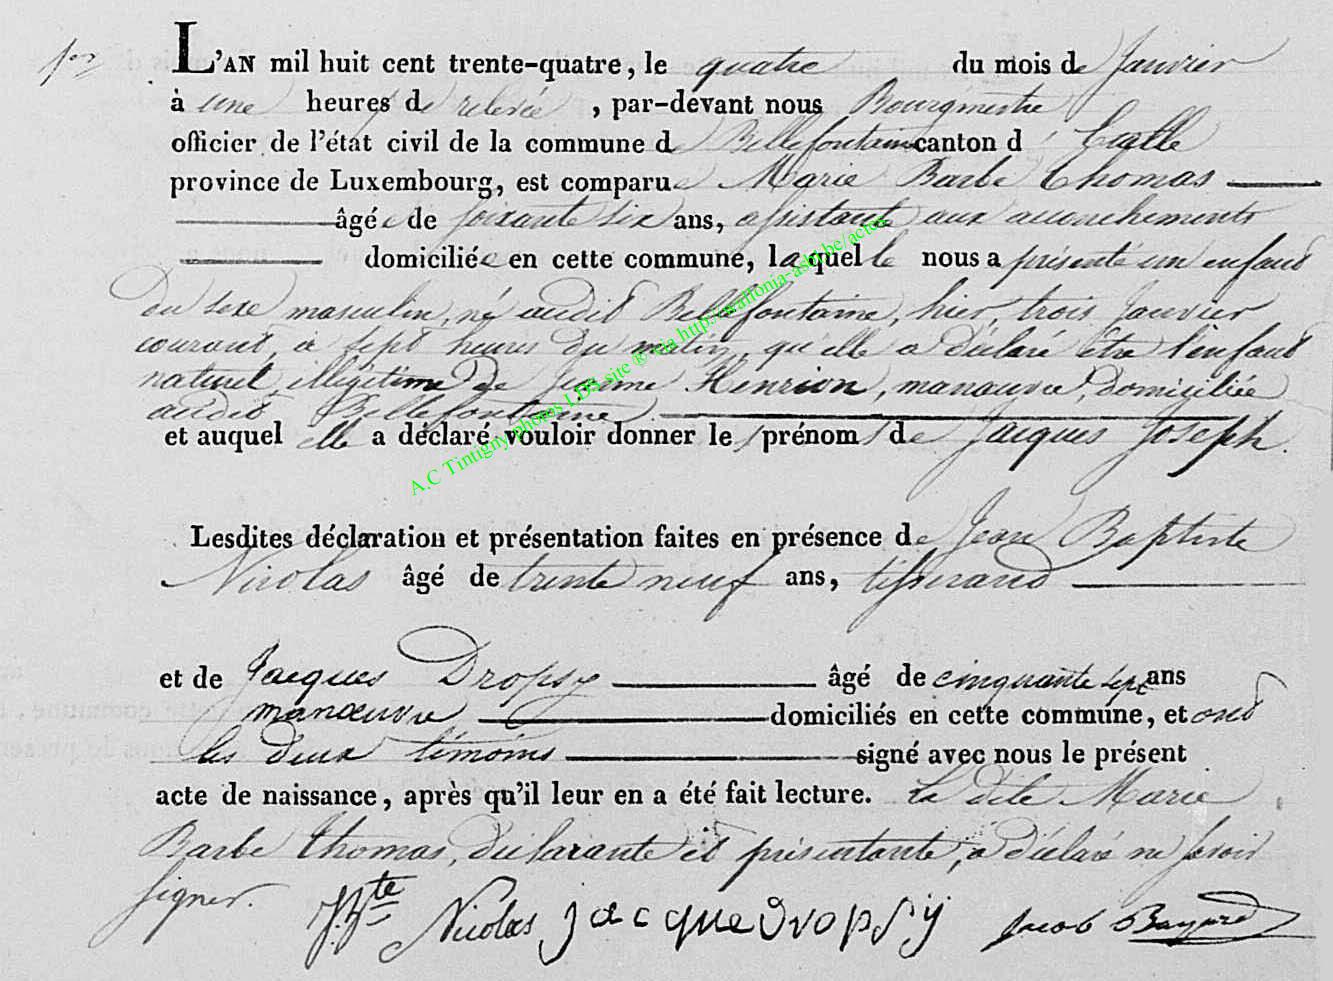 L'AN mil huit cent trente-quatre, le quatre du mois de Janvier
à une heures de relevée, par-devant nous Bourgmestre
officier de l'état civil de la commune de Bellefontaine canton d'
province de Luxembourg, est comparue Marie Barbe Thomas
âgée de soixante six ans, assistante aux accouchements
domiciliée en cette commune, laquelle nous a présenté un enfant
du sexe masculin, né audit Bellefontaine, hier trois Janvier
courant, à sept heures du matin, qu'elle a déclaré être l'enfant
naturel illégitime de Jeanne Henrion, manœuvre, domiciliée
audit Bellefontaine.
et auquel elle a déclaré vouloir donner les prénoms de Jacques Joseph.
Lesdites déclaration et présentation faites en présence de Jean Baptiste
Nicolas âgé de trente neuf ans, tisserand
et de Jacques Dropsy âgé de cinquante sept ans
manœuvre domiciliés en cette commune, et ont
les deux témoins signé avec nous le présent
acte de naissance, après qu'il leur en a été fait lecture. La dite Marie
Barbe Thomas, déclarante et présentante, a déclaré ne savoir
signer.
J. Bte Nicolas jacque dropsÿ Jacob
A.C Tintigny photos LDS site ® via http://wallonia-asbl.be/actes